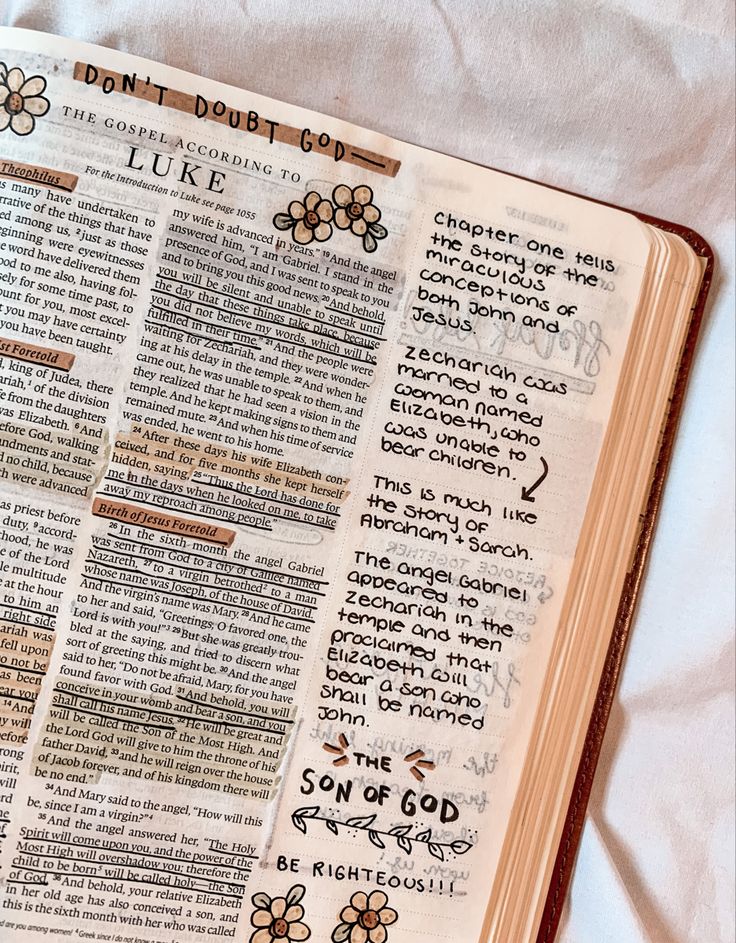 DON'T DOUBT GOD—
THE GOSPEL ACCORDING TO
LUKE
For the Introduction to Luke see page 1055
Theophilus
as many have undertaken to
rrative of the things that have
ed among us, 2just as those
eginning were eyewitnesses
word have delivered them
ood to me also, having fol-
sely for some time past, to
ount for you, most excel-
you may have certainty
you have been taught.
st Foretold
, king of Judea, there
ariah,¹ of the division
fe from the daughters
was Elizabeth. 6And
before God, walking
ndments and stat-
d no child, because
h were advanced
as priest before
duty, 9accord-
hood, he was
e of the Lord
e multitude
at the hour
to him an
right side
ariah was
fell upon
o not be
as been
ear you
14And
before
rong
irit,
will
my wife is advanced in years." 19And the angel
answered him, "I am Gabriel. I stand in the
presence of God, and I was sent to speak to you
and to bring you this good news. 20And behold,
you will be silent and unable to speak until
the day that these things take place, because
you did not believe my words, which will be
fulfilled in their time." 21And the people were
waiting for Zechariah, and they were wonder-
ing at his delay in the temple. 22And when he
came out, he was unable to speak to them, and
they realized that he had seen a vision in the
temple. And he kept making signs to them and
remained mute. 23And when his time of service
was ended, he went to his home.
24After these days his wife Elizabeth con-
ceived, and for five months she kept herself
hidden, saying, 25"Thus the Lord has done for
me in the days when he looked on me, to take
away my reproach among people."
Birth of Jesus Foretold
26In the sixth month the angel Gabriel
was sent from God to a city of Galilee named
Nazareth, 27to a virgin betrothed² to a man
whose name was Joseph, of the house of David.
And the virgin's name was Mary. 28And he came
to her and said, "Greetings, O favored one, the
Lord is with you!"³ 29But she was greatly trou-
bled at the saying, and tried to discern what
sort of greeting this might be. 30And the angel
said to her, "Do not be afraid, Mary, for you have
found favor with God. 31And behold, you will
conceive in your womb and bear a son, and you
shall call his name Jesus. 32He will be great and
will be called the Son of the Most High. And
the Lord God will give to him the throne of his
father David, 33and he will reign over the house
of Jacob forever, and of his kingdom there will
be no end."
34And Mary said to the angel, "How will this
be, since I am a virgin?"⁴
35And the angel answered her, "The Holy
Spirit will come upon you, and the power of the
Most High will overshadow you; therefore the
child to be born⁵ will be called holy—the Son
of God. 36And behold, your relative Elizabeth
in her old age has also conceived a son, and
this is the sixth month with her who was called
d are you among women! ⁴ Greek since I do not know a
Chapter one tells
the story of the
miraculous
conceptions of
both John and
Jesus.
Zechariah was
married to a
woman named
Elizabeth, who
was unable to
bear children.
This is much like
the story of
Abraham + Sarah.
The angel Gabriel
appeared to
Zechariah in the
temple and then
proclaimed that
Elizabeth will
bear a son who
shall be named
John.
THE
SON OF GOD
BE RIGHTEOUS!!!